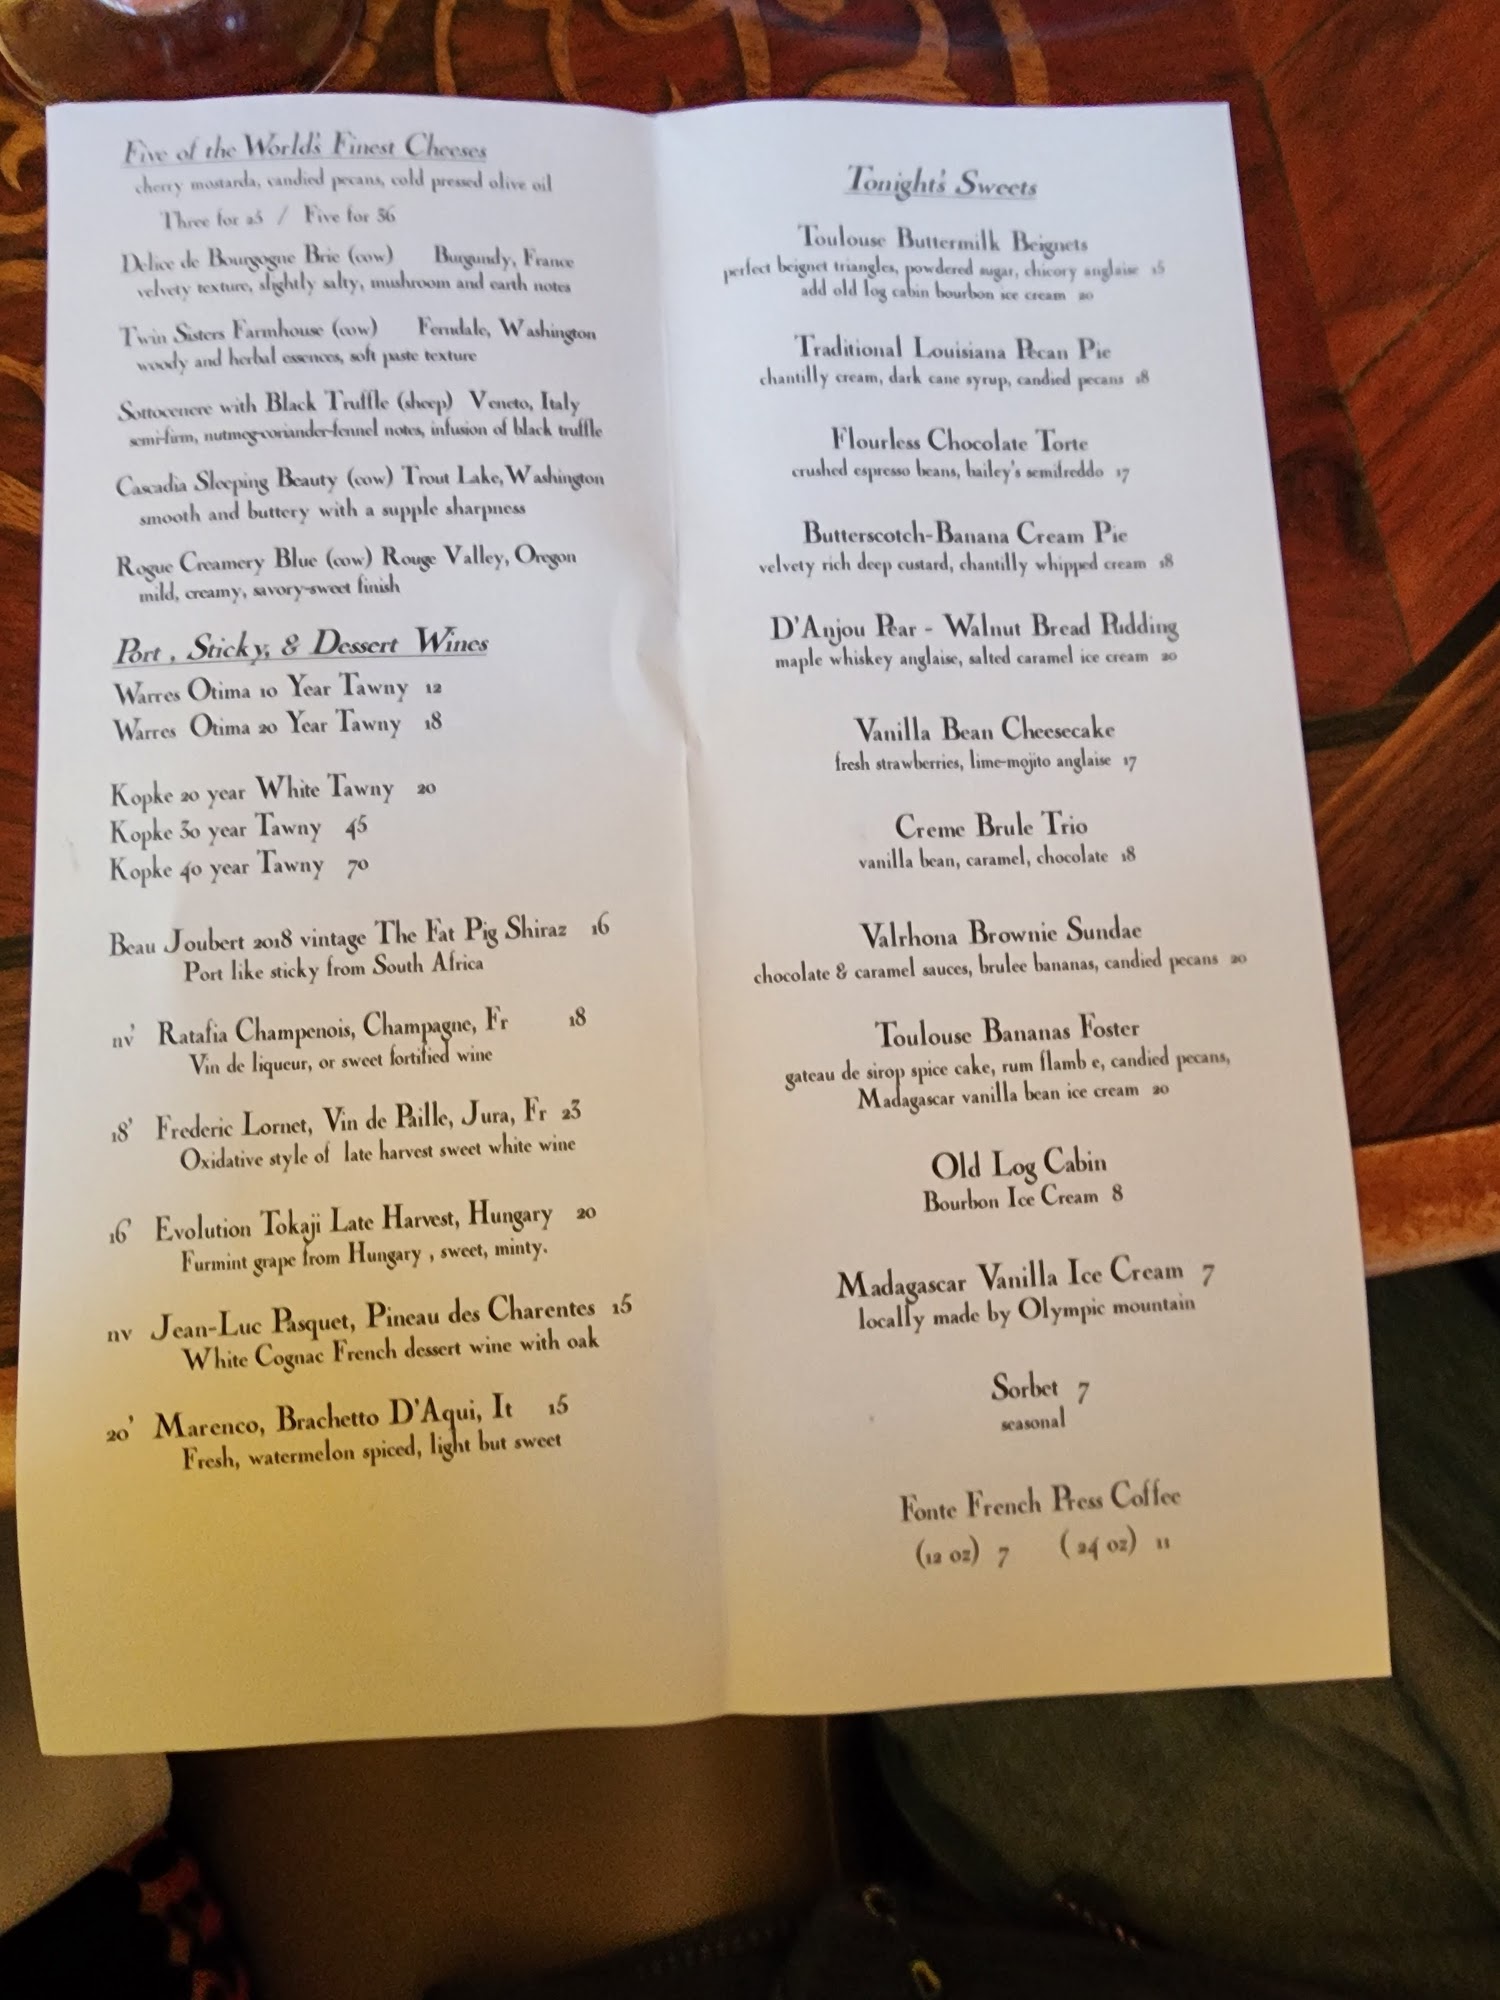 Five of the World's Finest Cheeses
cherry mostarda, candied pecans, cold pressed olive oil
Three for 25 / Five for 36
Delice de Bourgogne Brie (cow) Burgundy, France
velvety texture, slightly salty, mushroom and earth notes
Twin Sisters Farmhouse (cow) Ferndale, Washington
woody and herbal essences, soft paste texture
Sottocenere with Black Truffle (sheep) Veneto, Italy
semi-firm, nutmeg-coriander-fennel notes, infusion of black truffle
Cascadia Sleeping Beauty (cow) Trout Lake, Washington
smooth and buttery with a supple sharpness
Rogue Creamery Blue (cow) Rouge Valley, Oregon
mild, creamy, savory-sweet finish
Port , Sticky, & Dessert Wines
Warres Otima 10 Year Tawny 12
Warres Otima 20 Year Tawny 18
Kopke 20 year White Tawny 20
Kopke 30 year Tawny 45
Kopke 40 year Tawny 70
Beau Joubert 2018 vintage The Fat Pig Shiraz 16
Port like sticky from South Africa
nv' Ratafia Champenois, Champagne, Fr 18
Vin de liqueur, or sweet fortified wine
18' Frederic Lornet, Vin de Paille, Jura, Fr 23
Oxidative style of late harvest sweet white wine
16' Evolution Tokaji Late Harvest, Hungary 20
Furmint grape from Hungary , sweet, minty.
nv Jean-Luc Pasquet, Pineau des Charentes 15
White Cognac French dessert wine with oak
20' Marenco, Brachetto D'Aqui, It 15
Fresh, watermelon spiced, light but sweet
Tonight's Sweets
Toulouse Buttermilk Beignets
perfect beignet triangles, powdered sugar, chicory anglaise 15
add old log cabin bourbon ice cream 20
Traditional Louisiana Pecan Pie
chantilly cream, dark cane syrup, candied pecans 18
Flourless Chocolate Torte
crushed espresso beans, bailey's semifreddo 17
Butterscotch-Banana Cream Pie
velvety rich deep custard, chantilly whipped cream 18
D'Anjou Pear - Walnut Bread Pudding
maple whiskey anglaise, salted caramel ice cream 20
Vanilla Bean Cheesecake
fresh strawberries, lime-mojito anglaise 17
Creme Brule Trio
vanilla bean, caramel, chocolate 18
Valrhona Brownie Sundae
chocolate & caramel sauces, brulee bananas, candied pecans 20
Toulouse Bananas Foster
gateau de sirop spice cake, rum flamb e, candied pecans,
Madagascar vanilla bean ice cream 20
Old Log Cabin
Bourbon Ice Cream 8
Madagascar Vanilla Ice Cream 7
locally made by Olympic mountain
Sorbet 7
seasonal
Fonte French Press Coffee
(12 oz) 7 ( 24 oz) 11